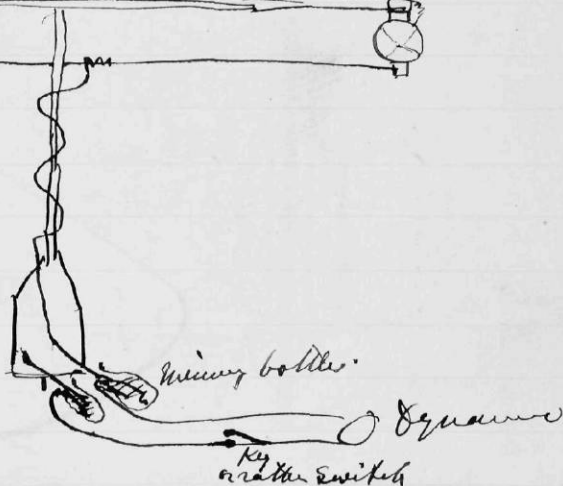 Mercury bottles.
Dynamo
Key
or rather Switch